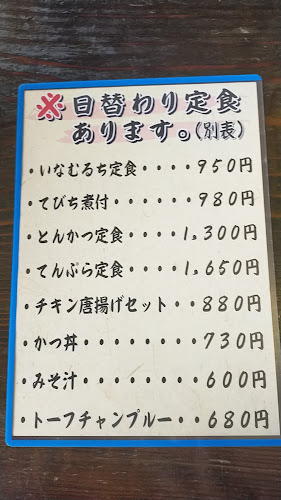 ※日替わり定食
あります。(別表)
・いなむるち定食・・・・950円
・てびち煮付・・・・・980円
・とんかつ定食・・・・1,300円
・てんぷら定食・・・・1,650円
・チキン唐揚げセット・・880円
・かつ丼・・・・・・・730円
・みそ汁・・・・・・・600円
・トーフチャンプルー・・680円